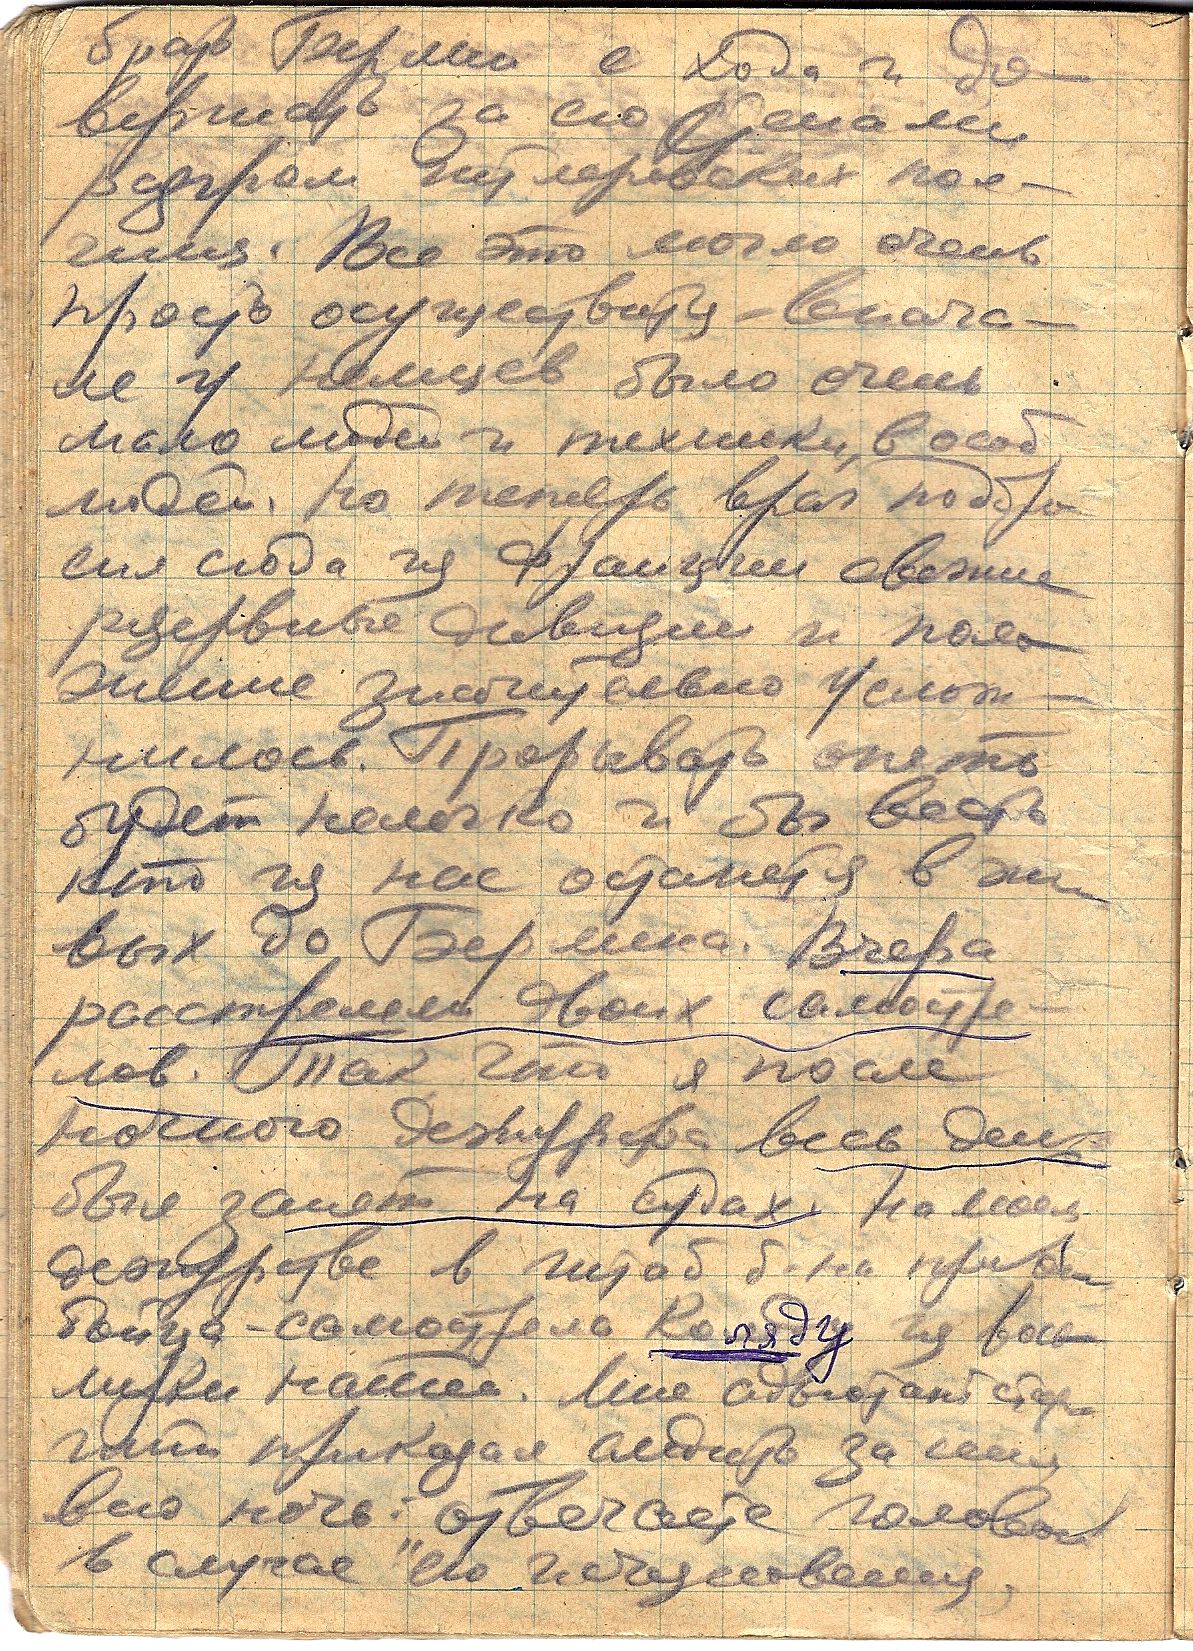 брать Берлин с хода и до-
вершать за его стенами
разгром гитлеровских пол-
чищ. Все это могло очень
просто осуществиться - внача-
ле у немцев было очень
мало людей и техники, в особ.
людей. Но теперь враг подбро
сил сюда из Франции свежие
резервные дивизии и поло
жение значительно услож-
нилось. Прорывать опять
будет нелегко и бы весть
кто из нас останется в жи
вых до Берлина. Вчера
расстреляли двоих самостре-
лов. Так что я после
ночного дежурства весь день
был занят на судах. На моем
дежурстве в штаб б-на привели
бойца-самострела Коляду из вось
мушки нашей. Мне адъютант стар-
ший приказал следить за ним
всю ночь: отвечаете головой
в случае "его исчезновения,